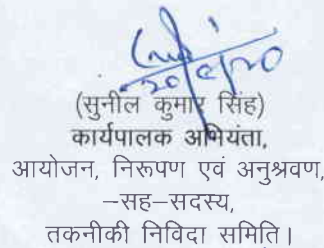 (सुनील कुमार सिंह)
कार्यपालक अभियंता,
आयोजन, निरूपण एवं अनुश्रवण,
–सह–सदस्य,
तकनीकी निविदा समिति।